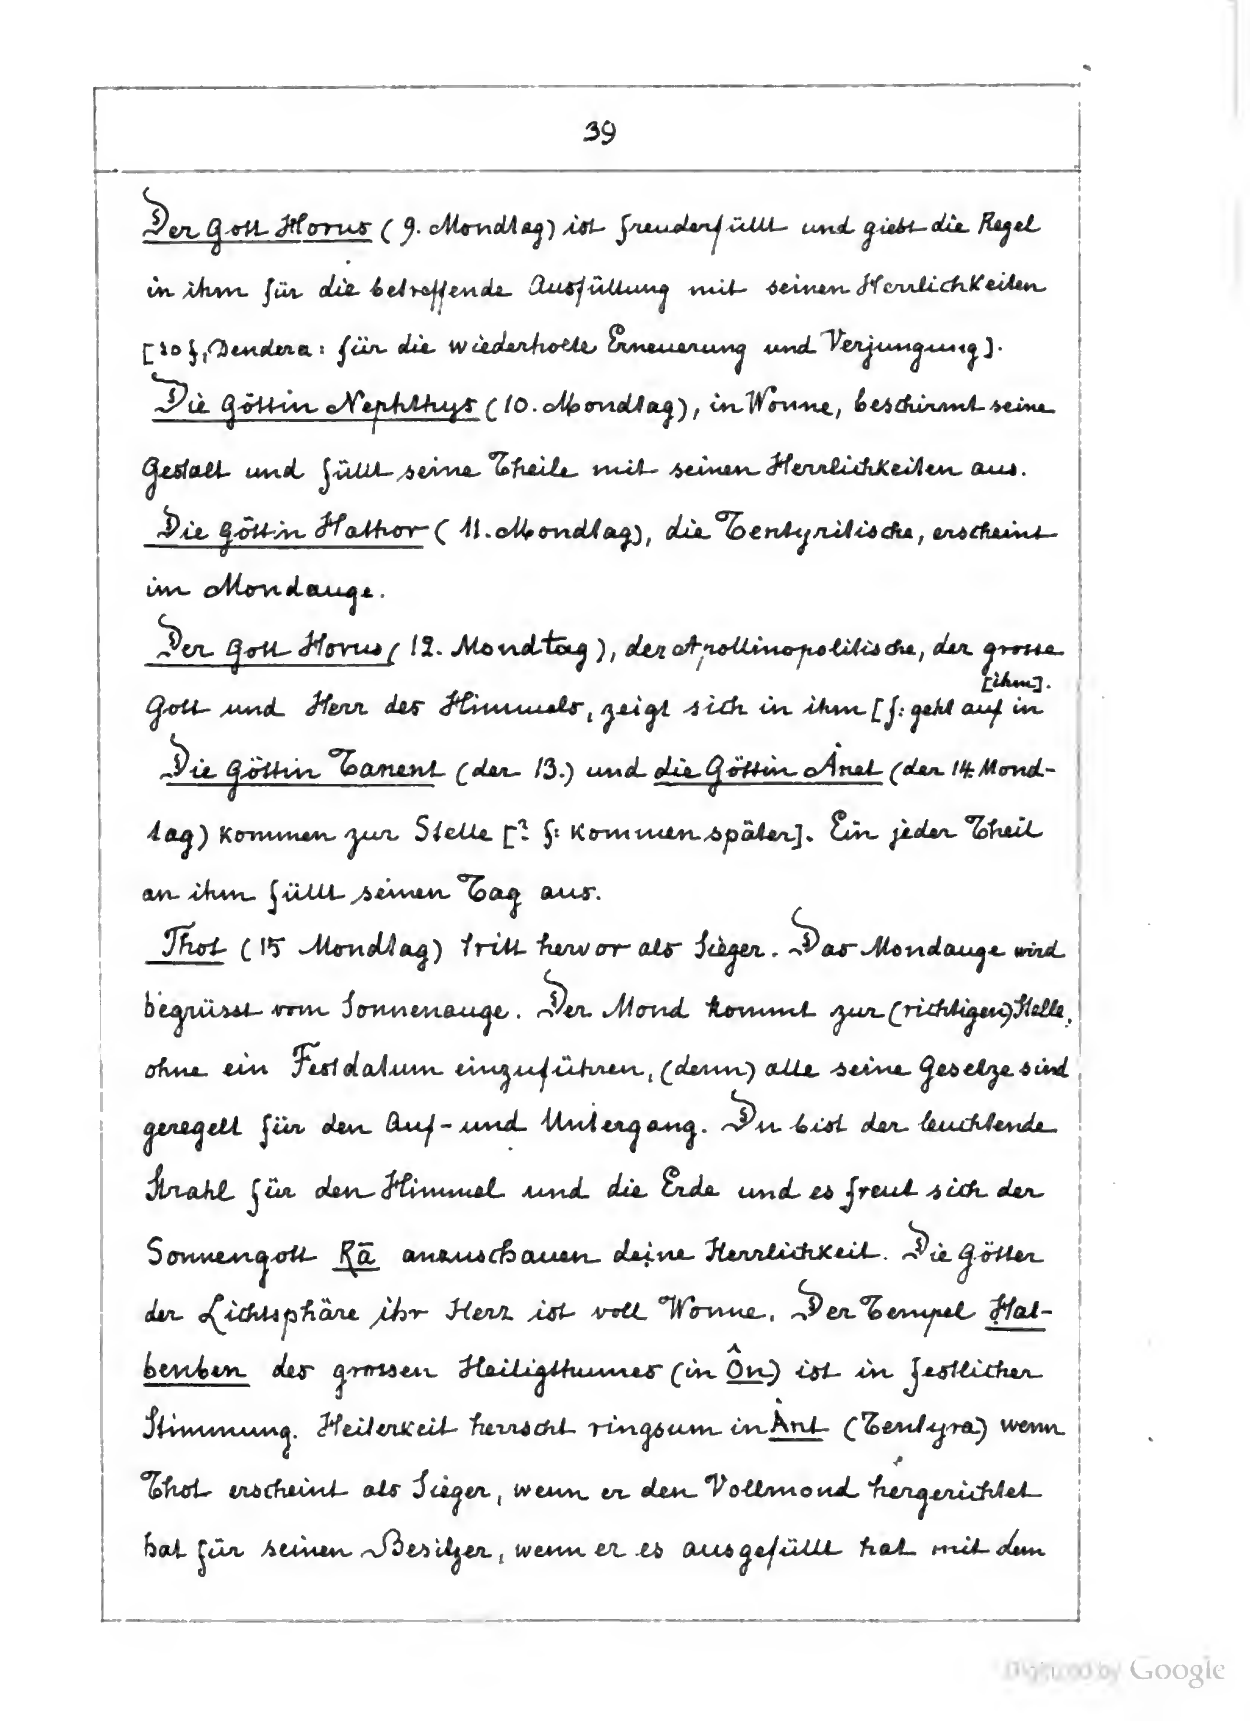 39
Der Gott Horus (9. Mondtag) ist freuderfüllt und giebt die Regel
in ihm für die betreffende Ausfüllung mit seinen Herrlichkeiten
[so f, Dendera: für die wiederholte Erneuerung und Verjungung].
Die Göttin Nephthys (10. Mondtag), in Wonne, beschirmt seine
Gestalt und füllt seine Theile mit seinen Herrlichkeiten aus.
Die Göttin Hathor (11. Mondtag), die Tentyritische, erscheint
im Mondauge.
Der Gott Horus (12. Mondtag), der Apollinopolitische, der grosse
[ihm].
Gott und Herr des Himmels, zeigt sich in ihm [f: geht auf in
Die Göttin Tanent (der 13.) und die Göttin Ȧnet (der 14. Mond-
tag) kommen zur Stelle [? f: kommen später]. Ein jeder Theil
an ihm füllt seinen Tag aus.
Thot (15 Mondtag) tritt hervor als Sieger. Das Mondauge wird
begrüsst vom Sonnenauge. Der Mond kommt zur (richtigen) Stelle,
ohne ein Festdatum einzuführen, (denn) alle seine Gesetze sind
geregelt für den Auf- und Untergang. Du bist der leuchtende
Strahl für den Himmel und die Erde und es freut sich der
Sonnengott Rā anzuschauen deine Herrlichkeit. Die Götter
der Lichtsphäre ihr Herz ist voll Wonne. Der Tempel Hat-
benben des grossen Heiligthumes (in Ôn) ist in festlicher
Stimmung. Heiterkeit herrscht ringsum in Ȧnt (Tentyra) wenn
Thot erscheint als Sieger, wenn er den Vollmond hergerichtet
hat für seinen Besitzer, wenn er es ausgefüllt hat mit dem
Digitized by Google